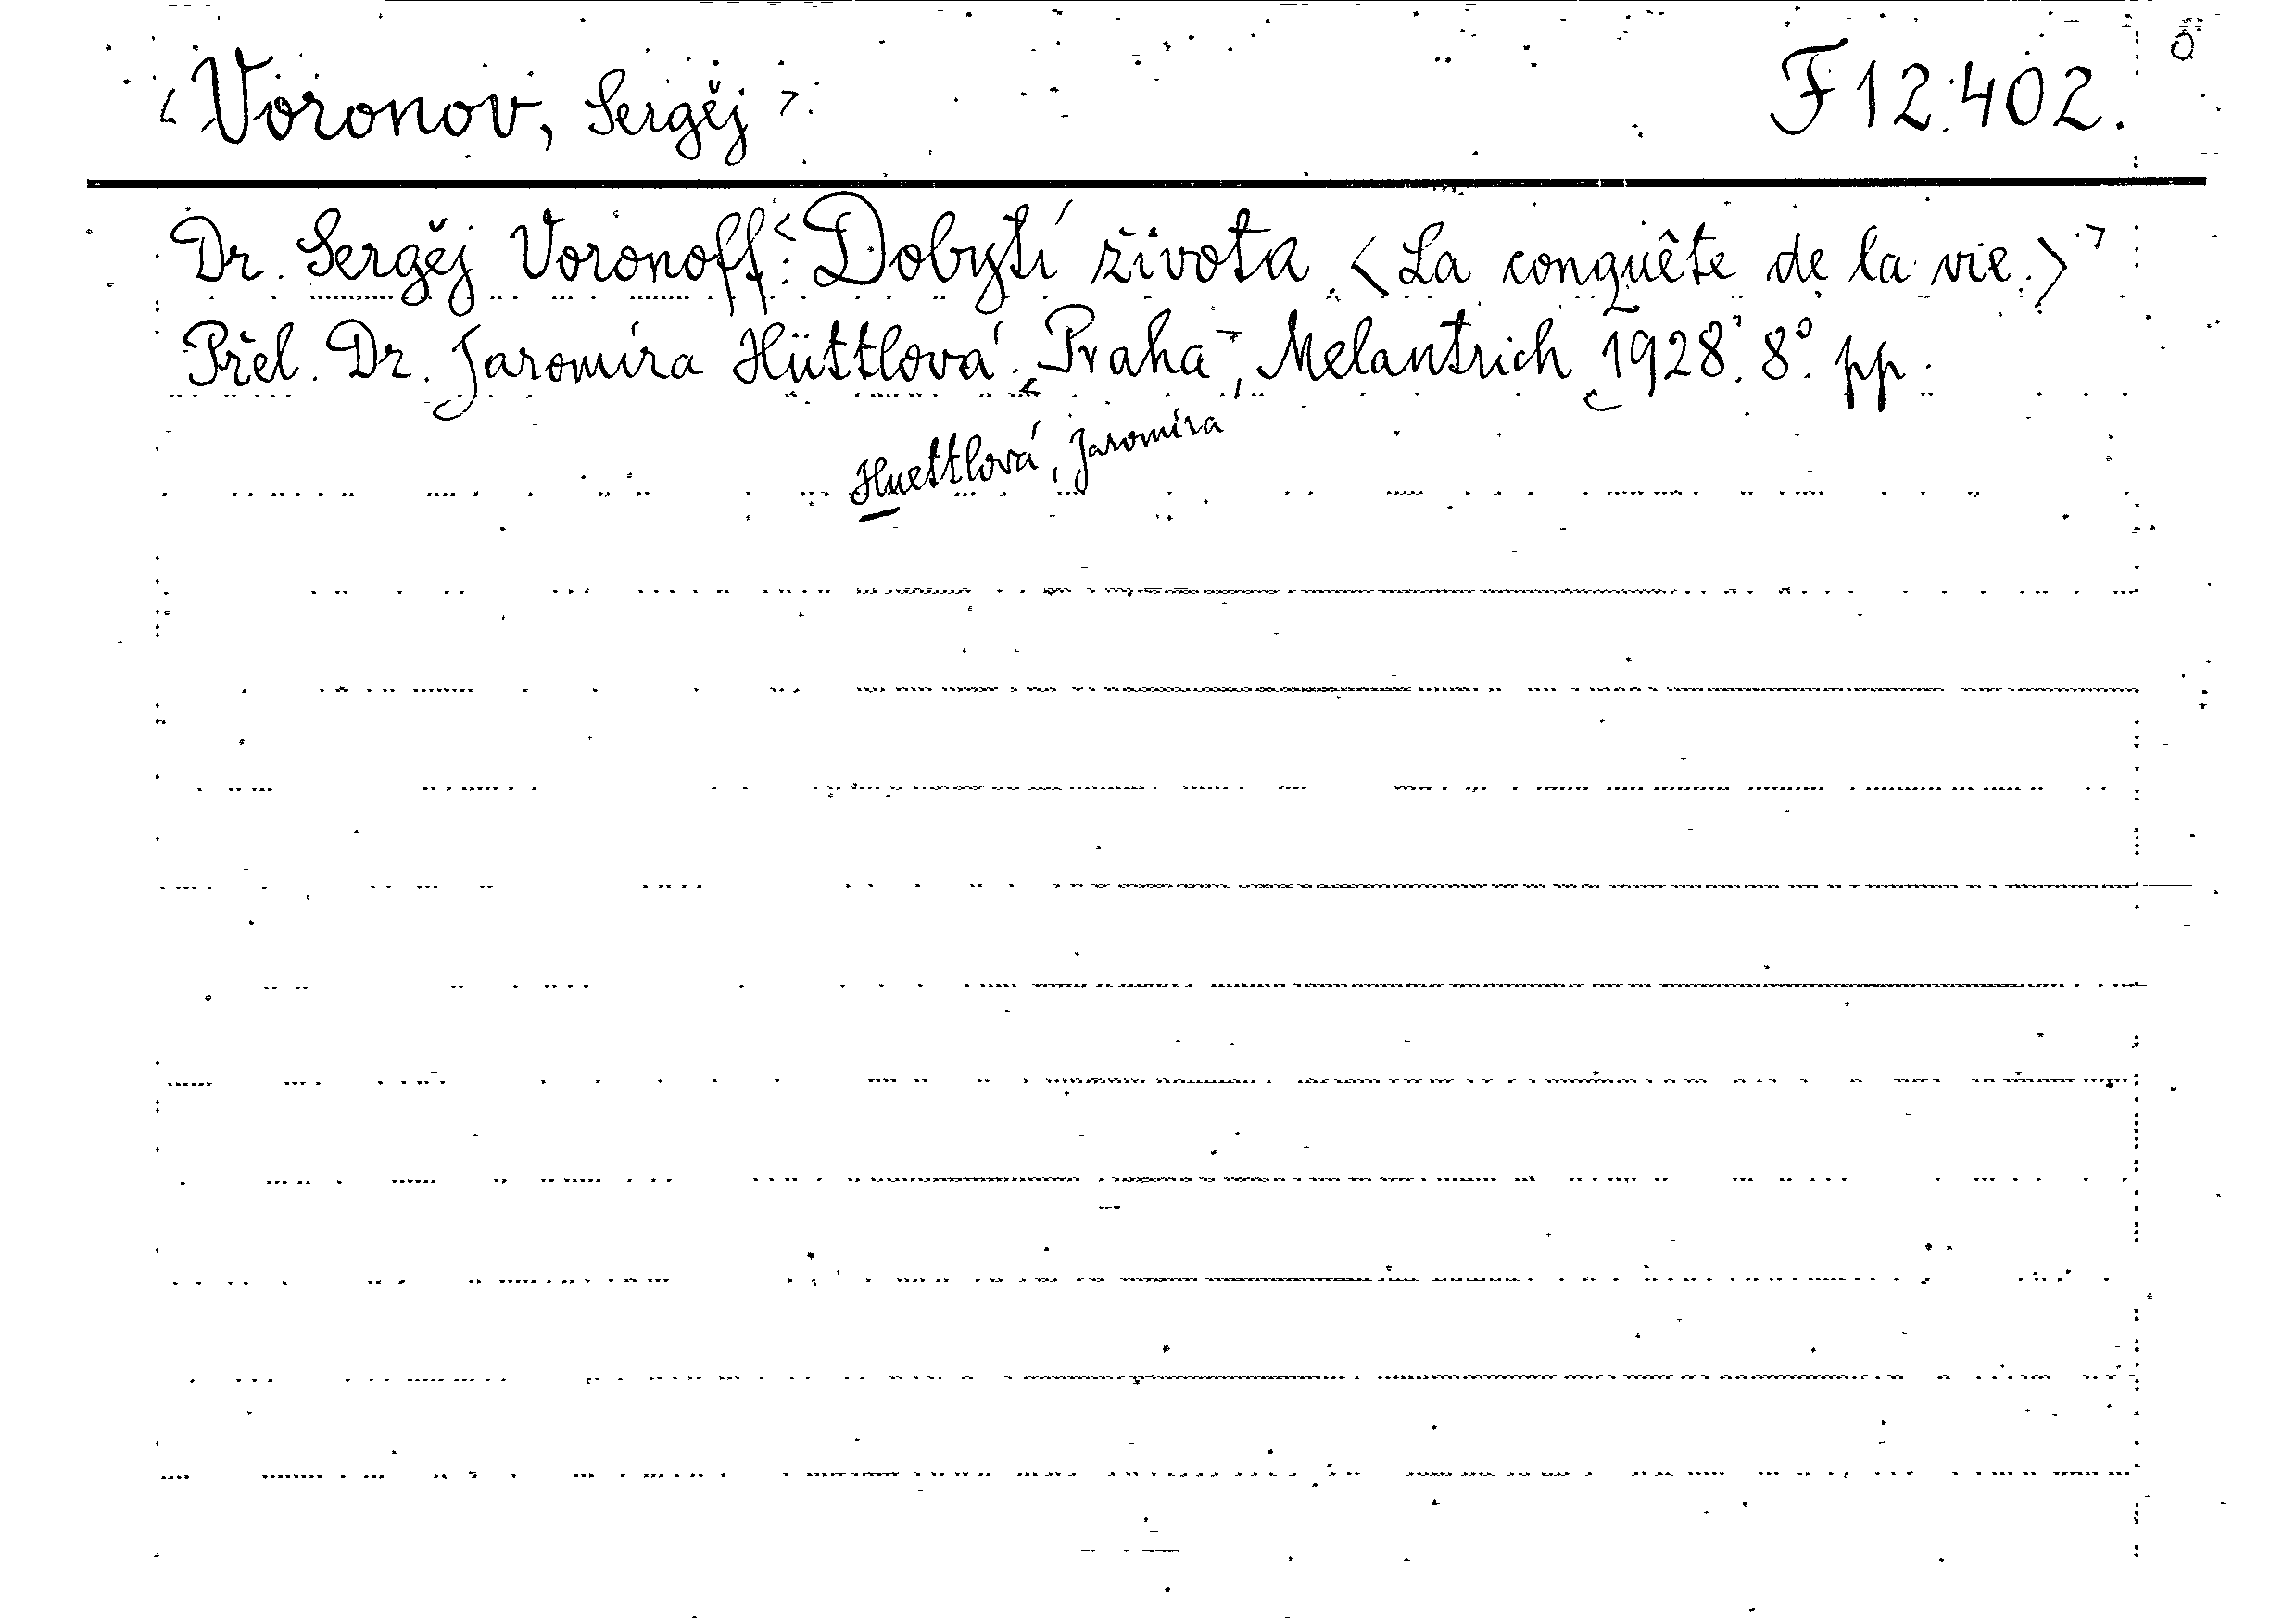 <Voronov, Sergěj> F 12.402.
Dr. Sergěj Voronoff: Dobytí života <La conquête de la vie.>
Přel. Dr. Jaromíra Hüttlová. Praha, Melantrich 1928. 8° pp.
Huettlová, Jaromíra